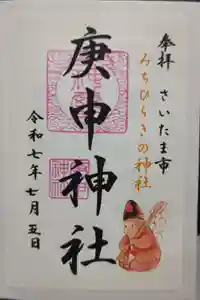 奉拝
さいたま市
みちひらきの神社
庚申神社
令和七年七月五日